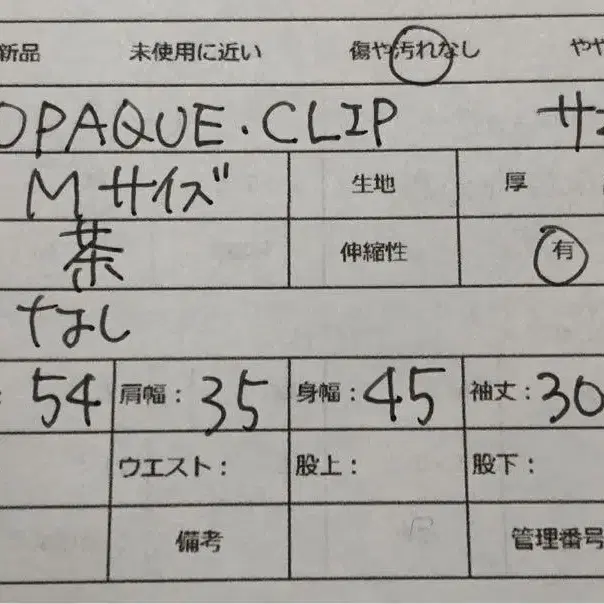 新品 未使用に近い 傷や汚れなし やや
OPAQUE.CLIP サ
Mサイズ 生地 厚
茶 伸縮性 有
なし
: 54 肩幅: 35 身幅: 45 袖丈: 30
ウエスト: 股上: 股下:
備考 管理番号